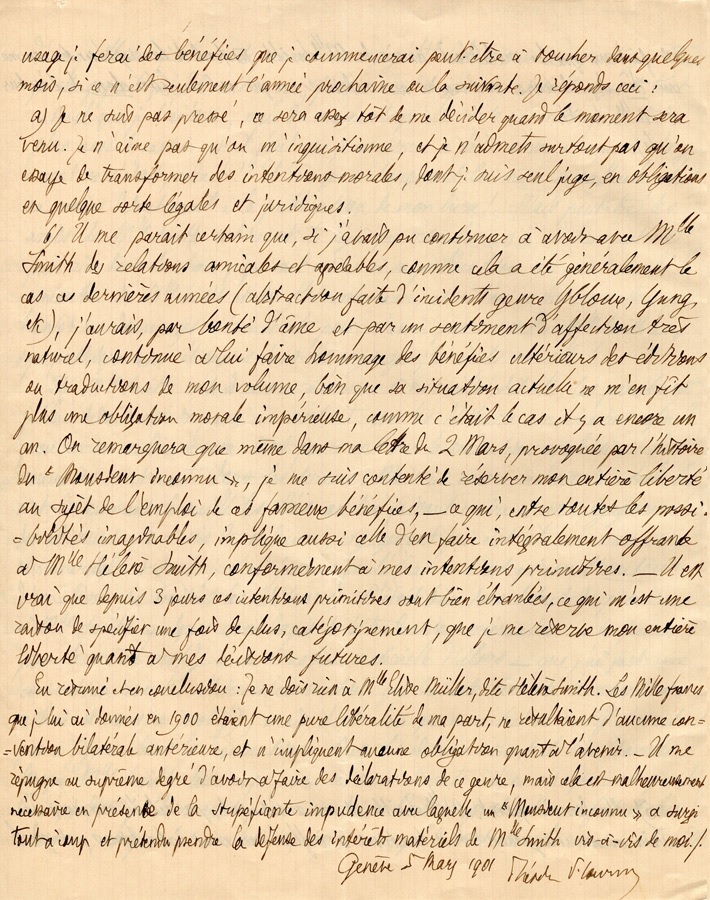 usage je ferai des bénéfices que je commencerai peut être à toucher dans quelques
mois, si ce n'est seulement l'année prochaine ou la suivante. Je réponds ceci :
a) Je ne suis pas pressé, ce sera assez tôt de me décider quand le moment sera
venu. Je n'aime pas qu'on m'inquisitionne, et je n'admets surtout pas qu'on
essaye de transformer des intentions morales, dont je suis seul juge, en obligations
en quelque sorte légales et juridiques.
b) Il me paraît certain que, si j'avais pu continuer à avoir avec Mlle
Smith des relations amicales et agréables, comme cela a été généralement le
cas ces dernières années (abstraction faite d'incidents genre Yung,
etc), j'aurais, par bonté d'âme et par un sentiment d'affection très
naturel, continué à lui faire hommage des bénéfices ultérieurs des éditions
ou traductions de mon volume, bien que sa situation actuelle ne m'en fît
plus une obligation morale impérieuse, comme c'était le cas il y a encore un
an. On remarquera que même dans ma lettre du 2 Mars, provoquée par l'histoire
du « Monsieur inconnu », je me suis contenté de réserver mon entière liberté
au sujet de l'emploi de ces fameux bénéfices, — ce qui, entre toutes les possi-
=bilités imaginables, implique aussi celle d'en faire intégralement offrande
à Mlle Hélène Smith, conformément à mes intentions primitives. — Il est
vrai que depuis 3 jours ces intentions primitives sont bien ébranlées, ce qui m'est une
raison de spécifier une fois de plus, catégoriquement, que je me réserve mon entière
liberté quant à mes décisions futures.
En résumé et en conclusion : Je ne dois rien à Mlle Elise Müller, dite Hélène Smith. Les Mille francs
que je lui ai donnés en 1900 étaient une pure libéralité de ma part, ne résultaient d'aucune con-
=vention bilatérale antérieure, et n'impliquent aucune obligation quant à l'avenir. — Il me
répugne au suprême degré d'avoir à faire des déclarations de ce genre, mais cela est malheureusement
nécessaire en présence de la stupéfiante impudence avec laquelle un « Monsieur inconnu » a surgi
tout à coup et prétendu prendre la défense des intérêts matériels de Mlle Smith vis-à-vis de moi./.
Genève 5 Mars 1901 Théodore Flournoy